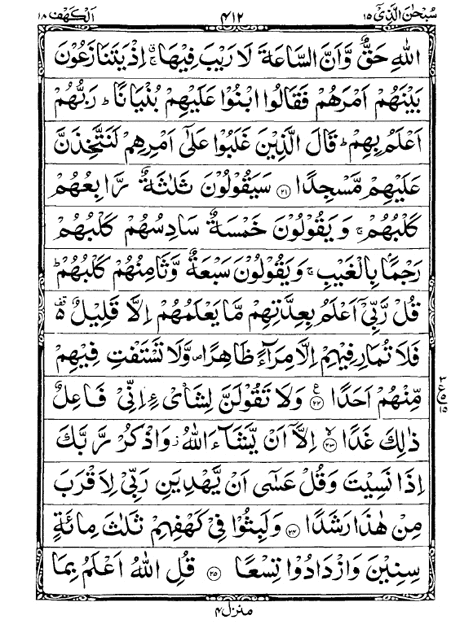 سُبْحٰنَ الَّذِىْٓ ١٥
٤١٢
اَلْكَهْف ١٨
اللّٰهِ حَقٌّ وَّاَنَّ السَّاعَةَ لَا رَيْبَ فِيْهَا ۚ اِذْ يَتَنَازَعُوْنَ
بَيْنَهُمْ اَمْرَهُمْ فَقَالُوا ابْنُوْا عَلَيْهِمْ بُنْيَانًا ؕ رَبُّهُمْ
اَعْلَمُ بِهِمْ ؕ قَالَ الَّذِيْنَ غَلَبُوْا عَلٰٓى اَمْرِهِمْ لَنَتَّخِذَنَّ
عَلَيْهِمْ مَّسْجِدًا ﴿٢١﴾ سَيَقُوْلُوْنَ ثَلٰثَةٌ رَّابِعُهُمْ
كَلْبُهُمْ ۚ وَيَقُوْلُوْنَ خَمْسَةٌ سَادِسُهُمْ كَلْبُهُمْ
رَجْمًۢا بِالْغَيْبِ ۚ وَيَقُوْلُوْنَ سَبْعَةٌ وَّثَامِنُهُمْ كَلْبُهُمْ ؕ
قُلْ رَّبِّىْٓ اَعْلَمُ بِعِدَّتِهِمْ مَّا يَعْلَمُهُمْ اِلَّا قَلِيْلٌ
فَلَا تُمَارِ فِيْهِمْ اِلَّا مِرَآءً ظَاهِرًا ۪ وَّلَا تَسْتَفْتِ فِيْهِمْ
مِّنْهُمْ اَحَدًا ﴿٢٢﴾ وَلَا تَقُوْلَنَّ لِشَاىْءٍ اِنِّىْ فَاعِلٌ
ذٰلِكَ غَدًا ﴿٢٣﴾ اِلَّاۤ اَنْ يَّشَآءَ اللّٰهُ ۫ وَاذْكُرْ رَّبَّكَ
اِذَا نَسِيْتَ وَقُلْ عَسٰٓى اَنْ يَّهْدِيَنِ رَبِّىْ لِاَقْرَبَ
مِنْ هٰذَا رَشَدًا ﴿٢٤﴾ وَلَبِثُوْا فِىْ كَهْفِهِمْ ثَلٰثَ مِائَةٍ
سِنِيْنَ وَازْدَادُوْا تِسْعًا ﴿٢٥﴾ قُلِ اللّٰهُ اَعْلَمُ بِمَا
منزل ٤